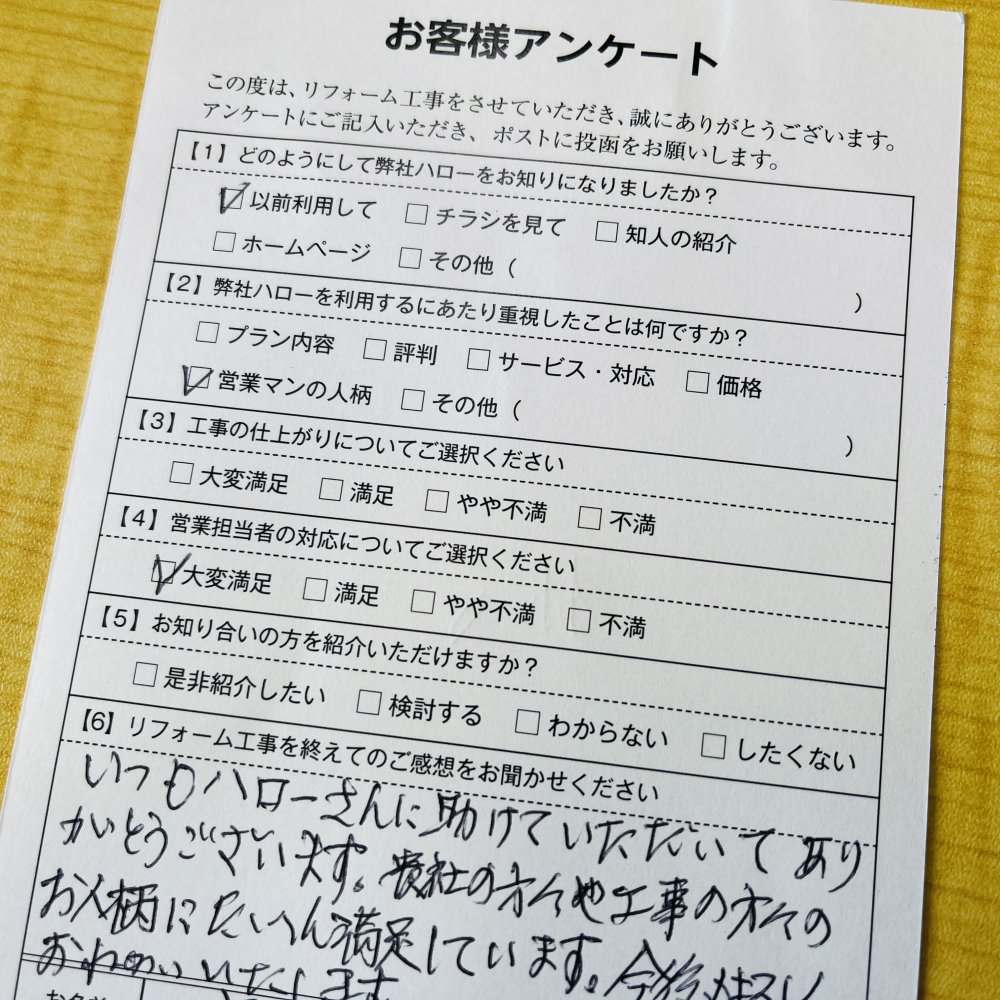 お客様アンケート
この度は、リフォーム工事をさせていただき、誠にありがとうございます。
アンケートにご記入いただき、ポストに投函をお願いします。
【1】どのようにして弊社ハローをお知りになりましたか？
☑以前利用して □チラシを見て □知人の紹介
□ホームページ □その他（ ）
【2】弊社ハローを利用するにあたり重視したことは何ですか？
□プラン内容 □評判 □サービス・対応 □価格
☑営業マンの人柄 □その他（ ）
【3】工事の仕上がりについてご選択ください
□大変満足 □満足 □やや不満 □不満
【4】営業担当者の対応についてご選択ください
☑大変満足 □満足 □やや不満 □不満
【5】お知り合いの方を紹介いただけますか？
□是非紹介したい □検討する □わからない □したくない
【6】リフォーム工事を終えてのご感想をお聞かせください
いつもハローさんに助けていただいてあり
がとうございます。貴社の方々や工事の方々の
お人柄にたいへん満足しています。今後
いたします